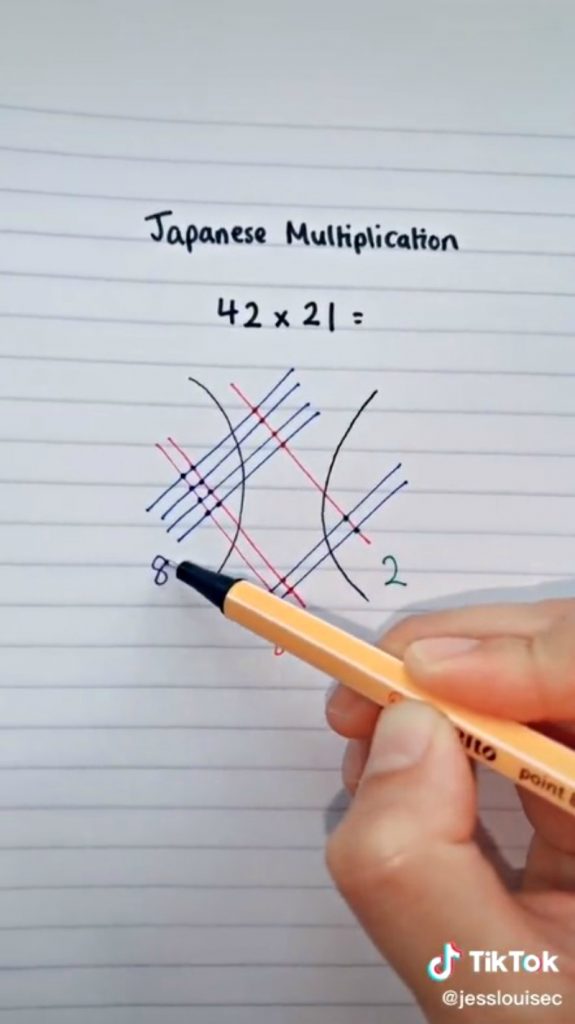 Japanese Multiplication
42 x 21 =
8
2
point 8
TikTok
@jesslouisec